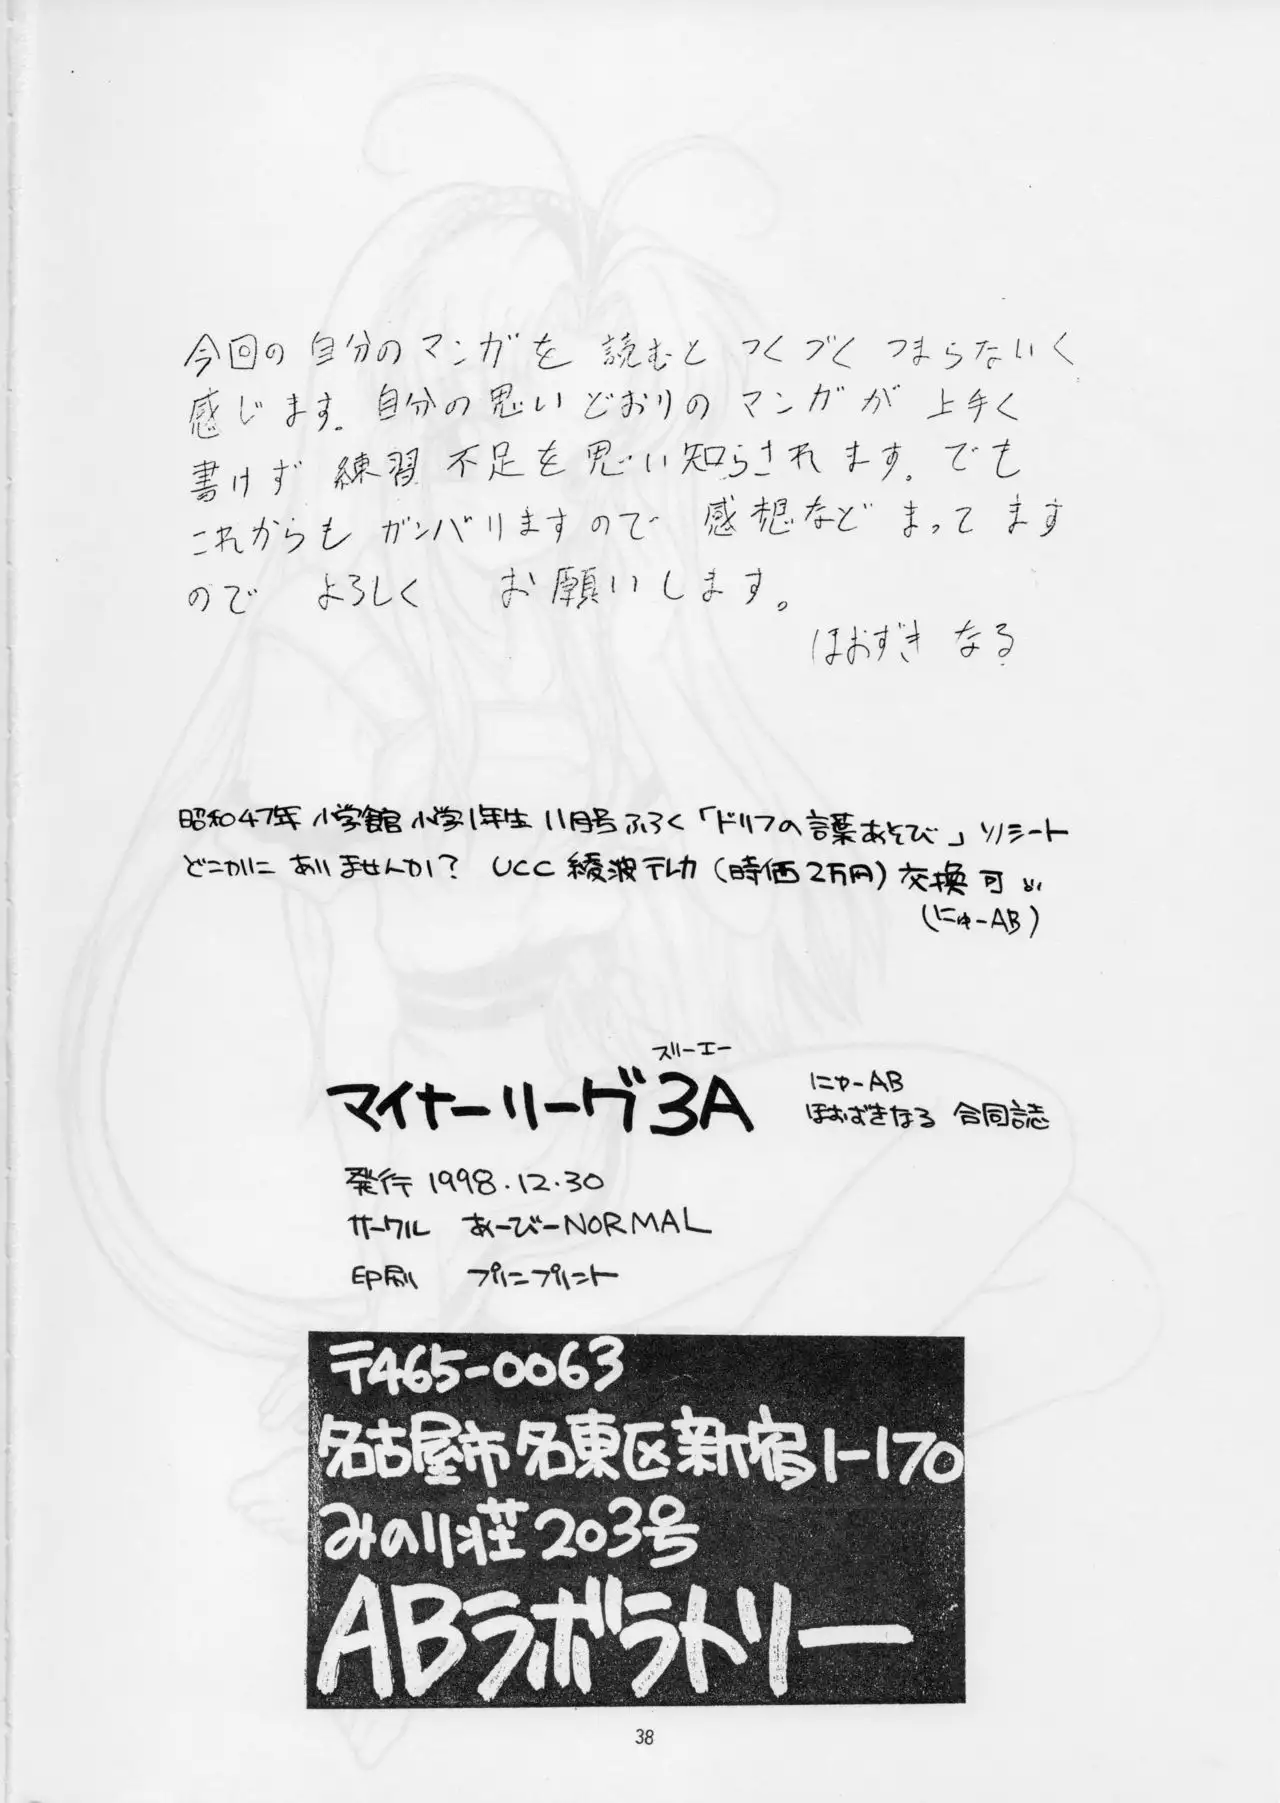 今回の自分のマンガを 読むと つくづく つまらないく
感じます。自分の思いどおりの マンガが 上手く
書けず 練習 不足を 思い知らされます。でも
これからも ガンバリますので 感想など まってます
ので よろしく お願いします。
ほおずき なる
昭和47年 小学館 小学1年生 11月号 ふろく「ドリフの言葉あそび」ソノシート
どこかに ありませんか? UCC 綾波テレカ(時価2万円)交換 可
(にゅーAB)
スリーエー
マイナーリーグ3A
にゅーAB
ほおずきなる 合同誌
発行 1998.12.30
サークル あーびーNORMAL
印刷 プリニプリント
〒465-0063
名古屋市名東区新宿1-170
みのり荘203号
ABラボラトリー
38